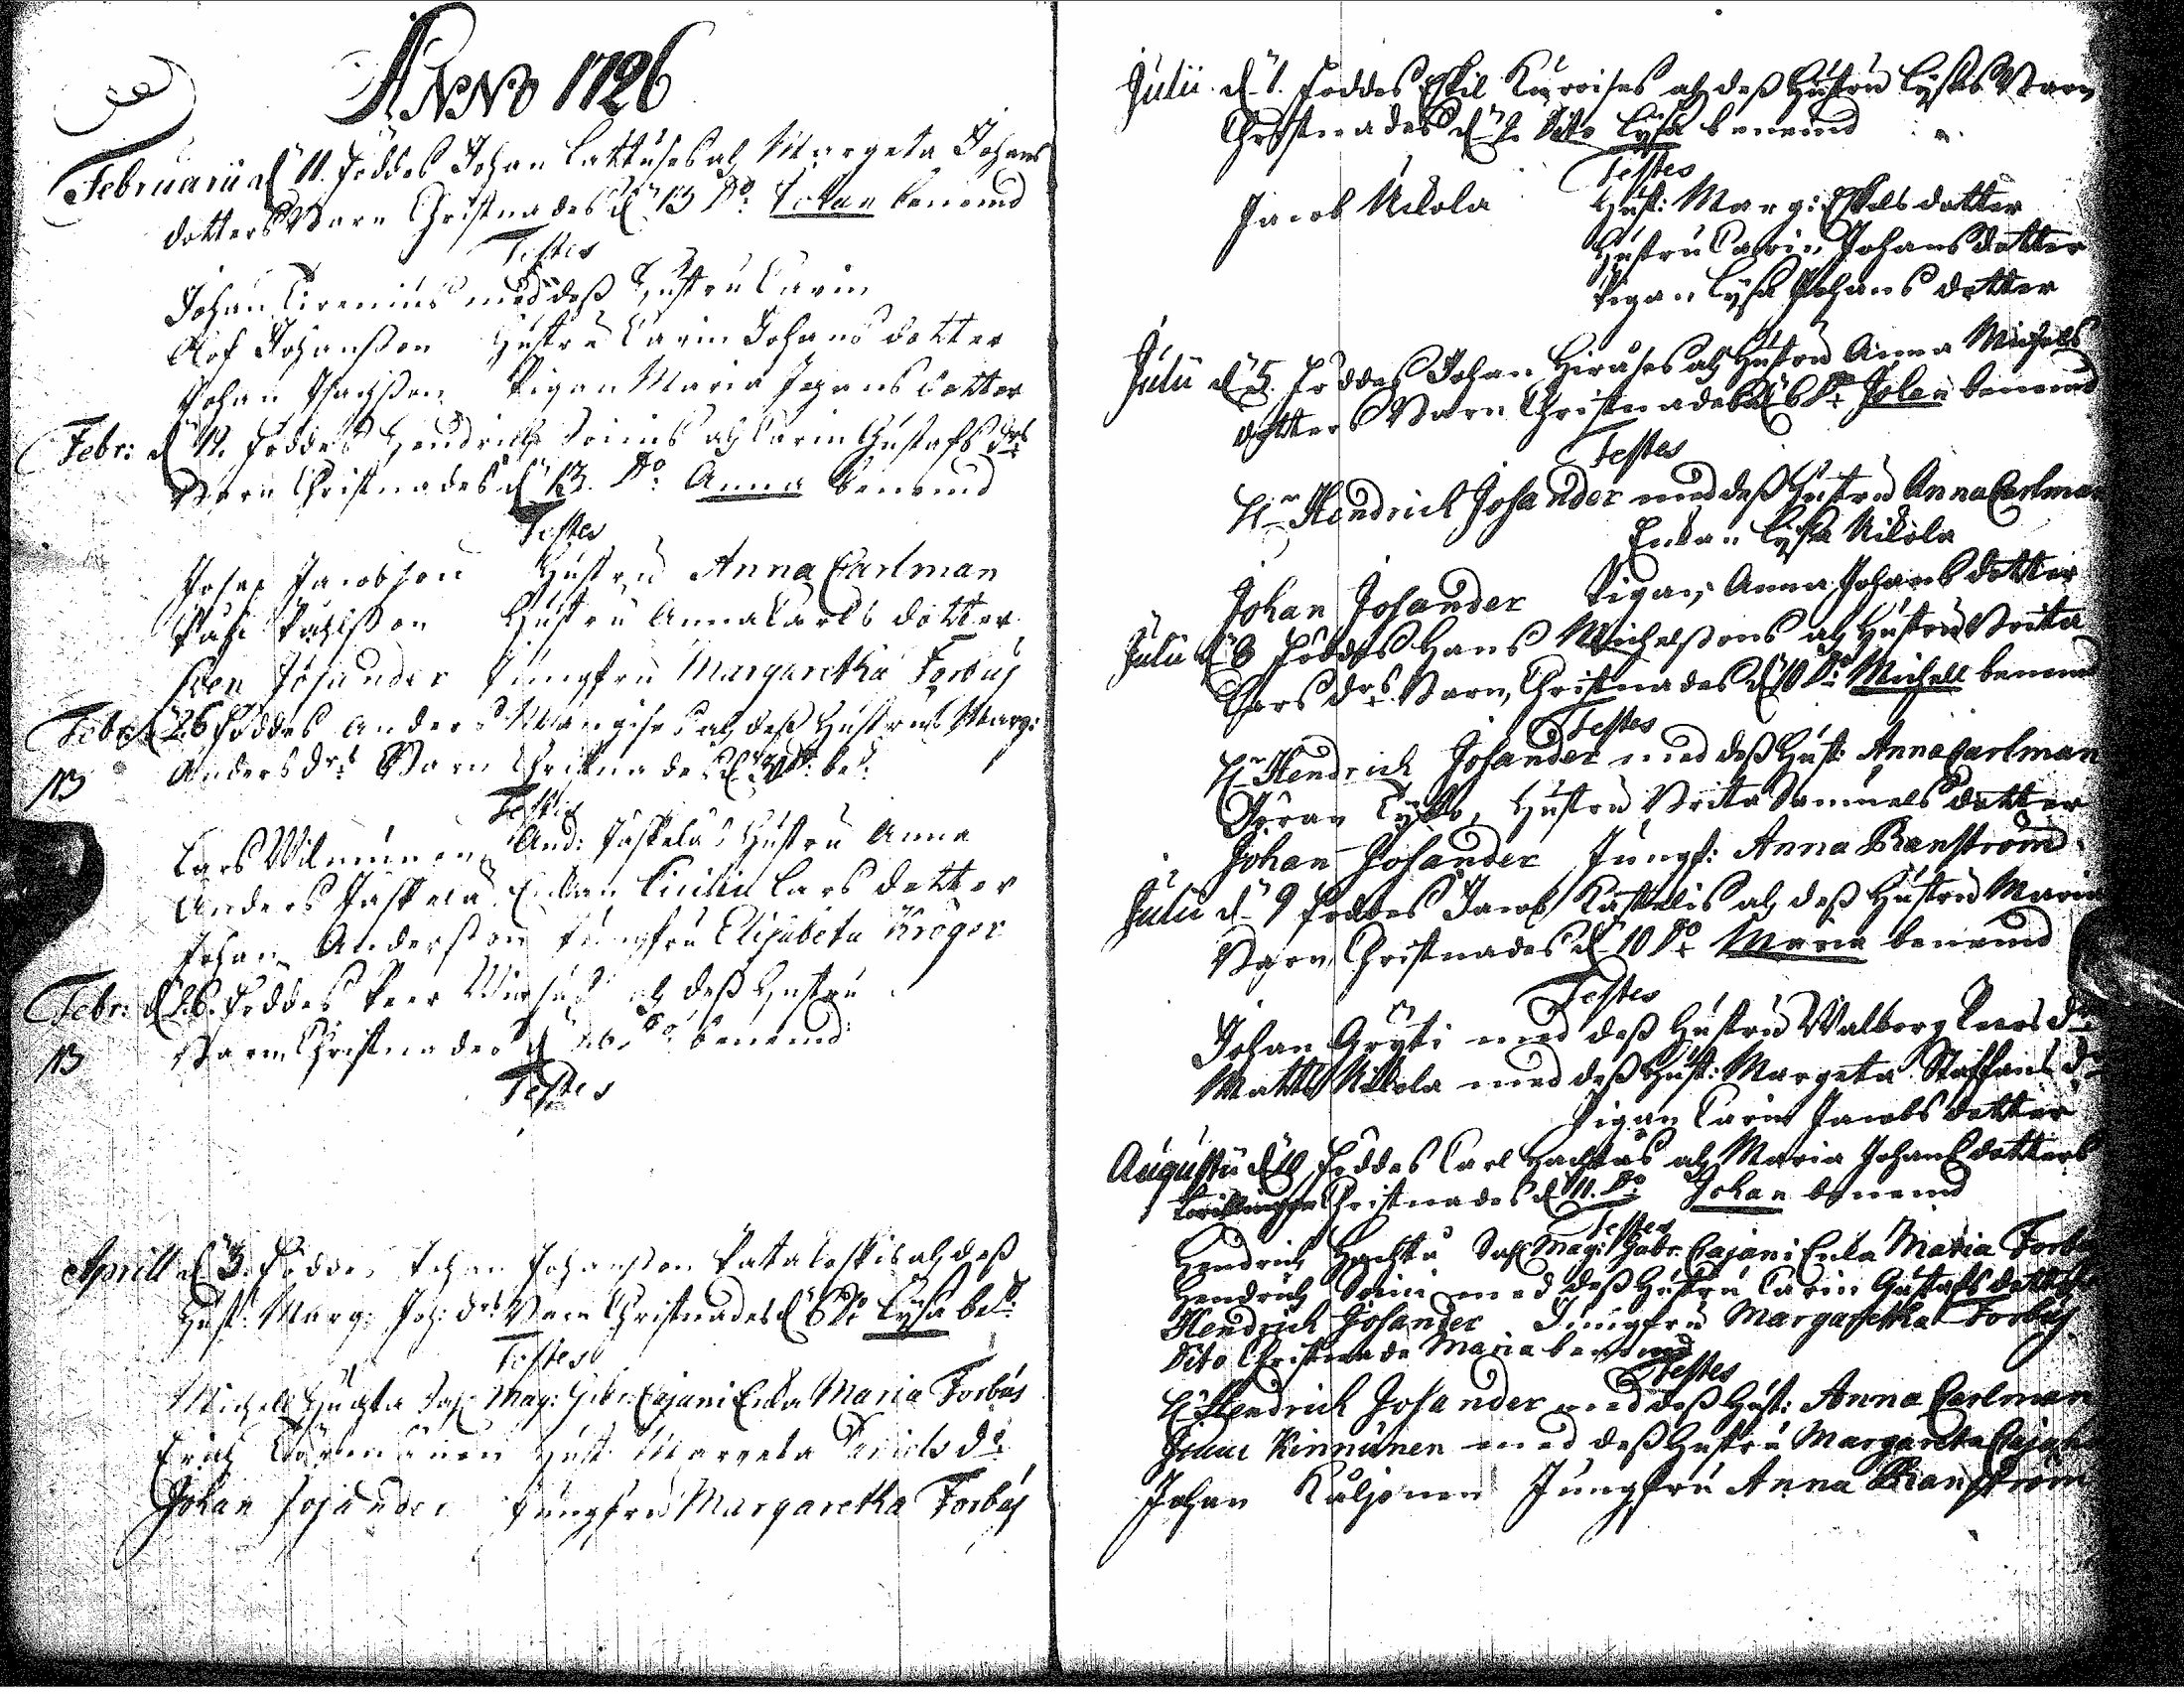 Anno 1726
Februarii d 11. Föddes Johan Lattuses och Margeta Johans
dotters Barn Christnades d 13 Do: Johan benemd
Testes
Johan Cirenius med dess Hustru Carin
Olof Johansson Hustru Carin Johans dotter
Johan Isachsson Pigan Maria Johans dotter
Febr: d 11. Föddes Hendrich Soinis och Carin Gustafs drs
Barn Christnades d 13. Do: Anna benemd
Testes
Josep Jacobson Hustru Anna Carlman
Påhl Påhlsson Hustru Anna Carls dotter
Sven Josander Jungfru Margaretha Forbus
Febr d 26 Föddes Anders dess Hustrus Marg:
Anders drs Barn Christnades d Do: be:
Testes
Lars And: Jaskelä Hustru Anna
Anders Jaskelä Enkan Lars dotter
Johan Andersson Jungfru Elisabeta Kröger
Febr: d 26. Föddes Peer och dess Hustru
Barn Christnades d Do benemd:
Testes
Aprill d 3. Föddes Johan Johansson och dess
Hust: Marg: Joh: drs Barn Christnades d 6 Do Lysa be:
Testes
Michell Huchta Sal: Mag: Gabr: Cajani Enka Maria Forbus
Erich Hust: Margeta dr
Johan Josander Jungfru Margaretha Forbus
Julii d 1. Föddes Eskil och dess Hustru Lysas Barn
Christnades d 2. Dito Lysa benemd
Testes
Jacob Ukkola Hust: Marg: Eskils dotter
Hustru Carin Johans dotter
Pigan Lysa Johans dotter
Julii d 5. Föddes Johan och Hustru Anna Michels
dotters Barn Christnades d 6 Do: benemd
Testes
Hr Hendrich Josander med dess Hustru Anna Carlman
Enkan Lysa Ukkola
Johan Josander Pigan Anna Johans dotter
Julii d 8 Föddes Hans Michelssons och Hustru Brita
Lars drs Barn, Christnades d 10 Do: Michell benemd
Testes
Hr Hendrich Josander med dess Hust: Anna Carlman
Göran Hustru Brita Samuels dotter
Johan Josander Jungf: Anna Branström
Julii d 9 Föddes Jacob och dess Hustru Maria
Barn, Christnades d 10 Do: Maria benemd
Testes
Johan Gryti med dess Hustru Walborg Peers dr
Matts Ukkola med dess Hust: Margeta Staffans dr
Pigan Carin Jacobs dotter
Augusti d 10 Föddes Carl och Maria Johans dotters
Christnades d 11. Do Johan benemd
Testes
Hendrich Sal: Mag: Gabr: Cajani Enka Maria Forbus
Hendrich Soini med dess Hustru Carin Gustafs dotter
Hendrich Josander Jungfru Margaretha Forbus
Dito Christnade Maria benemd
Testes
Hr Hendrich Josander med dess Hust: Anna Carlman
Kinnunen med dess Hustru Margareta
Johan Kuljonen Jungfru Anna Branström